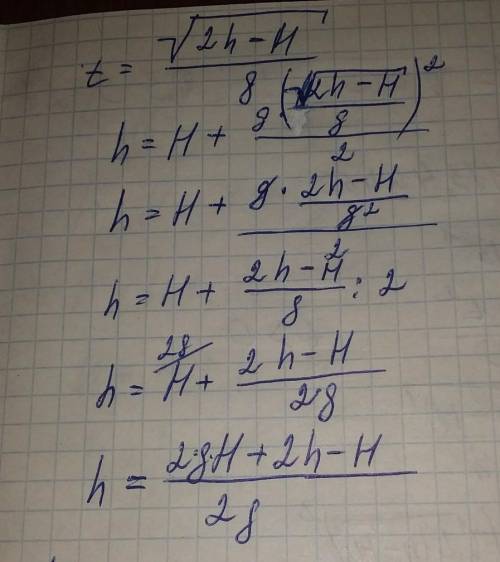 t = √(2h − H) / g
h = H + g · (√(2h − H) / g)² / 2
h = H + g · (2h − H / g²) / 2
h = H + (2h − H) / g : 2
h = H^(2g/) + (2h − H) / 2g
h = (2·g·H + 2h − H) / 2g